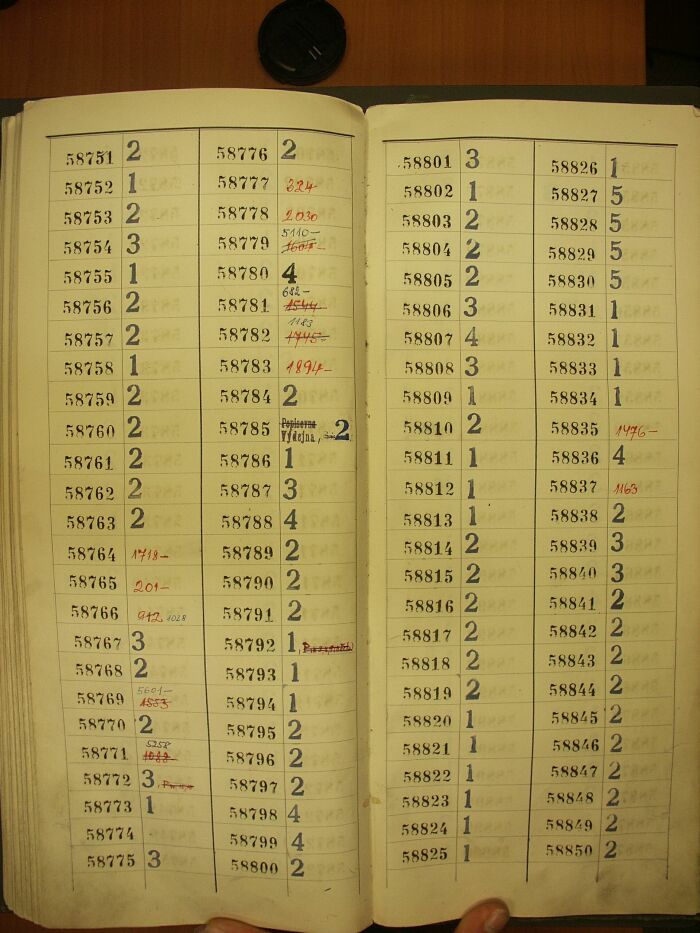 58751 2
58752 1
58753 2
58754 3
58755 1
58756 2
58757 2
58758 1
58759 2
58760 2
58761 2
58762 2
58763 2
58764 1718-
58765 201-
58766 912 1028
58767 3
58768 2
5601-
58769 1553
58770 2
5258
58771
58772 3
58773 1
58774
58775 3
58776 2
58777 324
58778 2030
5110-
58779 1607-
58780 4
682-
58781 1544-
1183
58782 1745-
58783 1894-
58784 2
Popisovna
58785 Výdejna, 2
58786 1
58787 3
58788 4
58789 2
58790 2
58791 2
58792 1,
58793 1
58794 1
58795 2
58796 2
58797 2
58798 4
58799 4
58800 2
58801 3
58802 1
58803 2
58804 2
58805 2
58806 3
58807 4
58808 3
58809 1
58810 2
58811 1
58812 1
58813 1
58814 2
58815 2
58816 2
58817 2
58818 2
58819 2
58820 1
58821 1
58822 1
58823 1
58824 1
58825 1
58826 1
58827 5
58828 5
58829 5
58830 5
58831 1
58832 1
58833 1
58834 1
58835 1476-
58836 4
58837 1163
58838 2
58839 3
58840 3
58841 2
58842 2
58843 2
58844 2
58845 2
58846 2
58847 2
58848 2
58849 2
58850 2